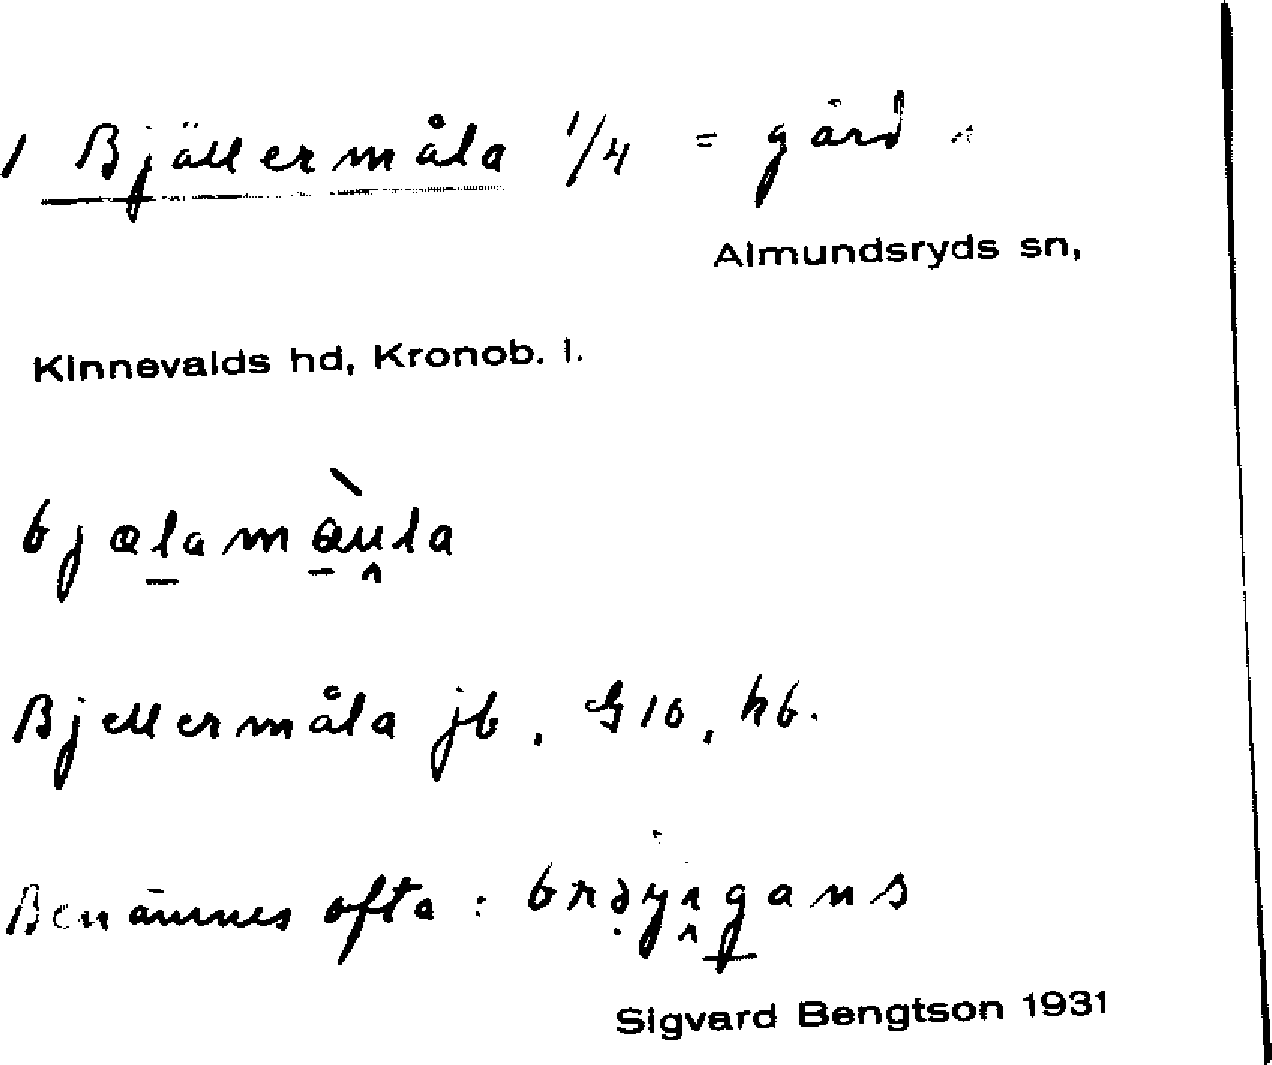 1 Bjällermåla 1/4 = gård
Almundsryds sn,
Kinnevalds hd, Kronob. l.
bjælamæ̀ula
Bjellermåla jb, G10, hb.
Benämnes ofta:
Sigvard Bengtson 1931